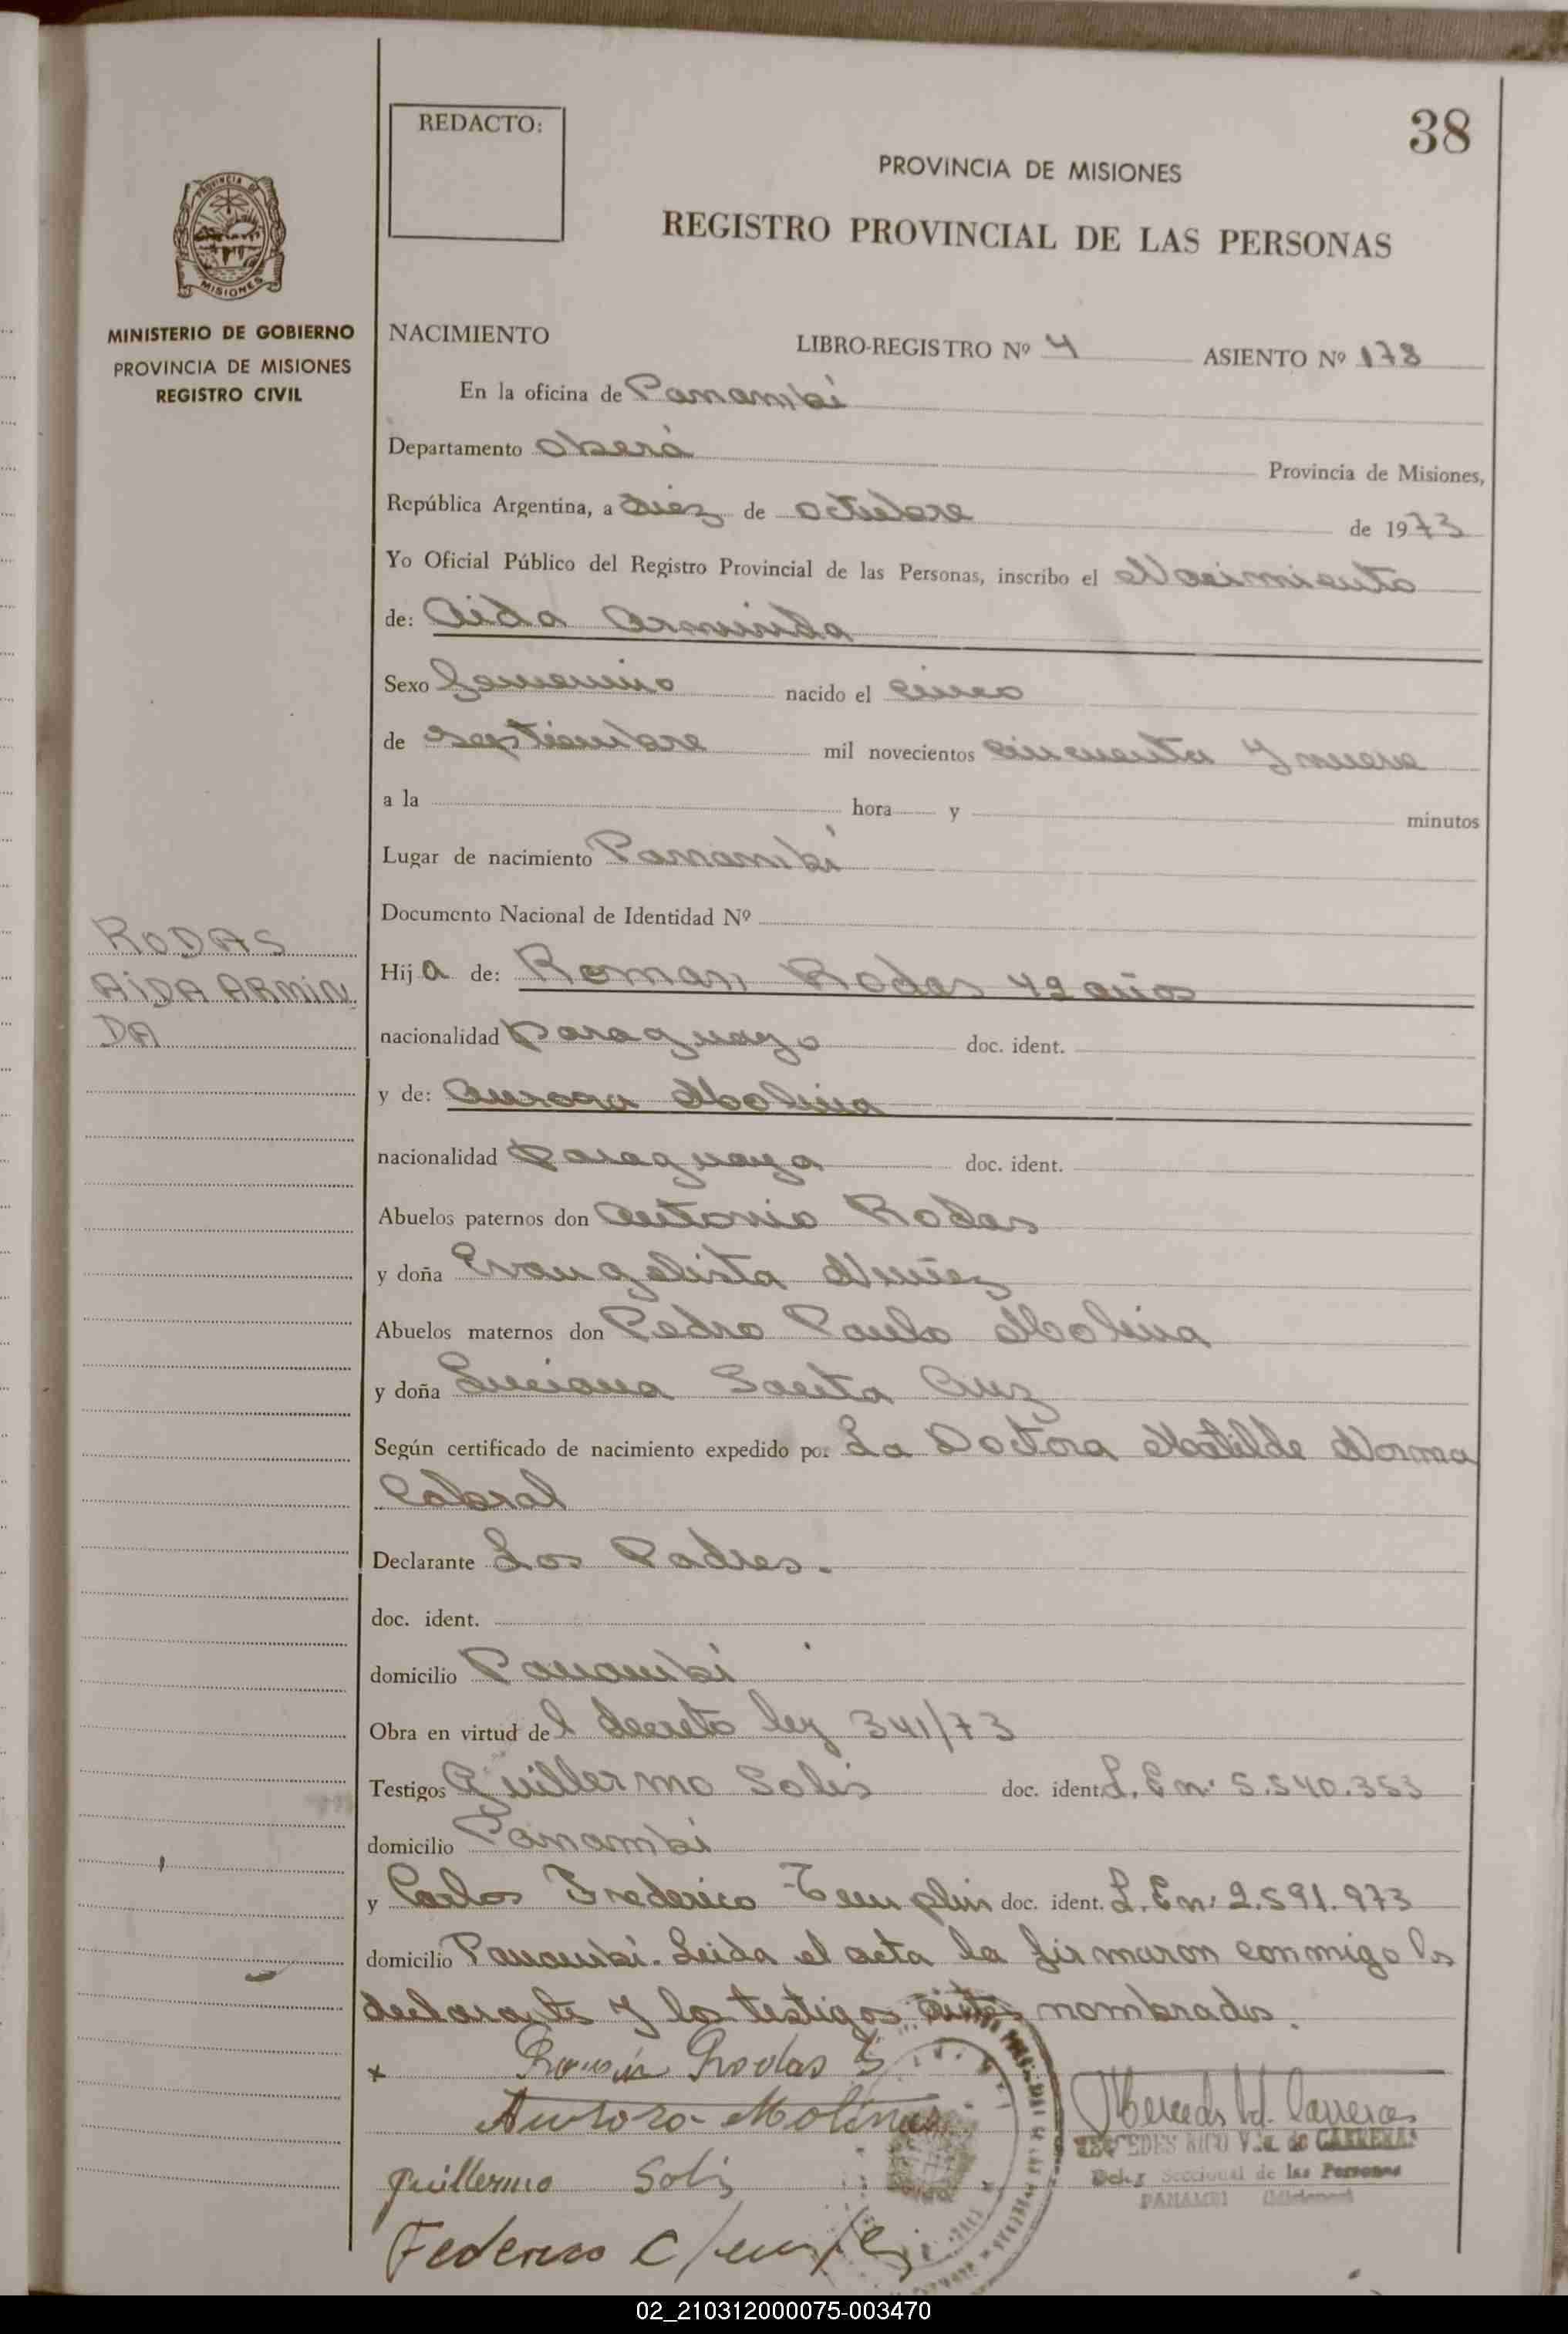 38
REDACTO:
PROVINCIA DE MISIONES
REGISTRO PROVINCIAL DE LAS PERSONAS
PROVINCIA DE
MISIONES
MINISTERIO DE GOBIERNO
PROVINCIA DE MISIONES
REGISTRO CIVIL
NACIMIENTO LIBRO-REGISTRO Nº 4 ASIENTO Nº 178
En la oficina de Panambí
Departamento Oberá Provincia de Misiones,
República Argentina, a diez de octubre de 1973
Yo Oficial Público del Registro Provincial de las Personas, inscribo el Nacimiento
de: Aida Arminda
Sexo femenino nacido el cinco
de septiembre mil novecientos cincuenta y nueve
a la hora y minutos
Lugar de nacimiento Panambí
Documento Nacional de Identidad Nº
RODAS
AIDA ARMIN
DA
Hija de: Roman Rodas 42 años
nacionalidad Paraguayo doc. ident.
y de: Aurora Molina
nacionalidad Paraguaya doc. ident.
Abuelos paternos don Antonio Rodas
y doña Evangelista Nuñez
Abuelos maternos don Pedro Paulo Molina
y doña Luciana Santa Cruz
Según certificado de nacimiento expedido por La Doctora Matilde Norma
Cabral
Declarante Los Padres.
doc. ident.
domicilio Panambi
Obra en virtud del decreto ley 341/73
Testigos Guillermo Solis doc. ident. L. E nº 5.540.353
domicilio Panambi
y Carlos Frederico Templin doc. ident. L. E nº 2.591.973
domicilio Panambí. Leida el acta la firmaron conmigo los
declarantes y los testigos antes nombrados.
Román Rodas
Aurora Molinas
Guillermo Solis
Federico C
Mercedes Carreras
MERCEDES RICO Vda. de CARRERAS
Deleg Seccional de las Personas
PANAMBI
02_210312000075-003470